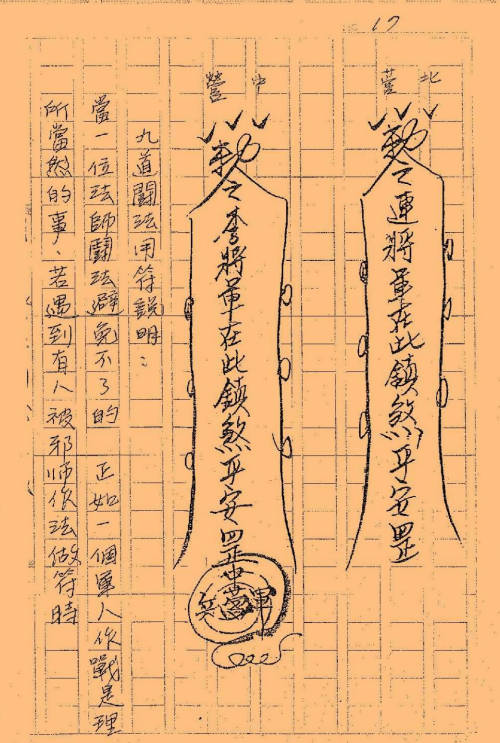 17
北营
勅令連將軍在此鎮煞平安罡
中營
勅令李將軍在此鎮煞平安罡
九道鬪法用符說明：
當一位法師鬪法避免不了的 正如一個軍人作戰是理
所當然的事、若遇到有人被邪师作法做符時